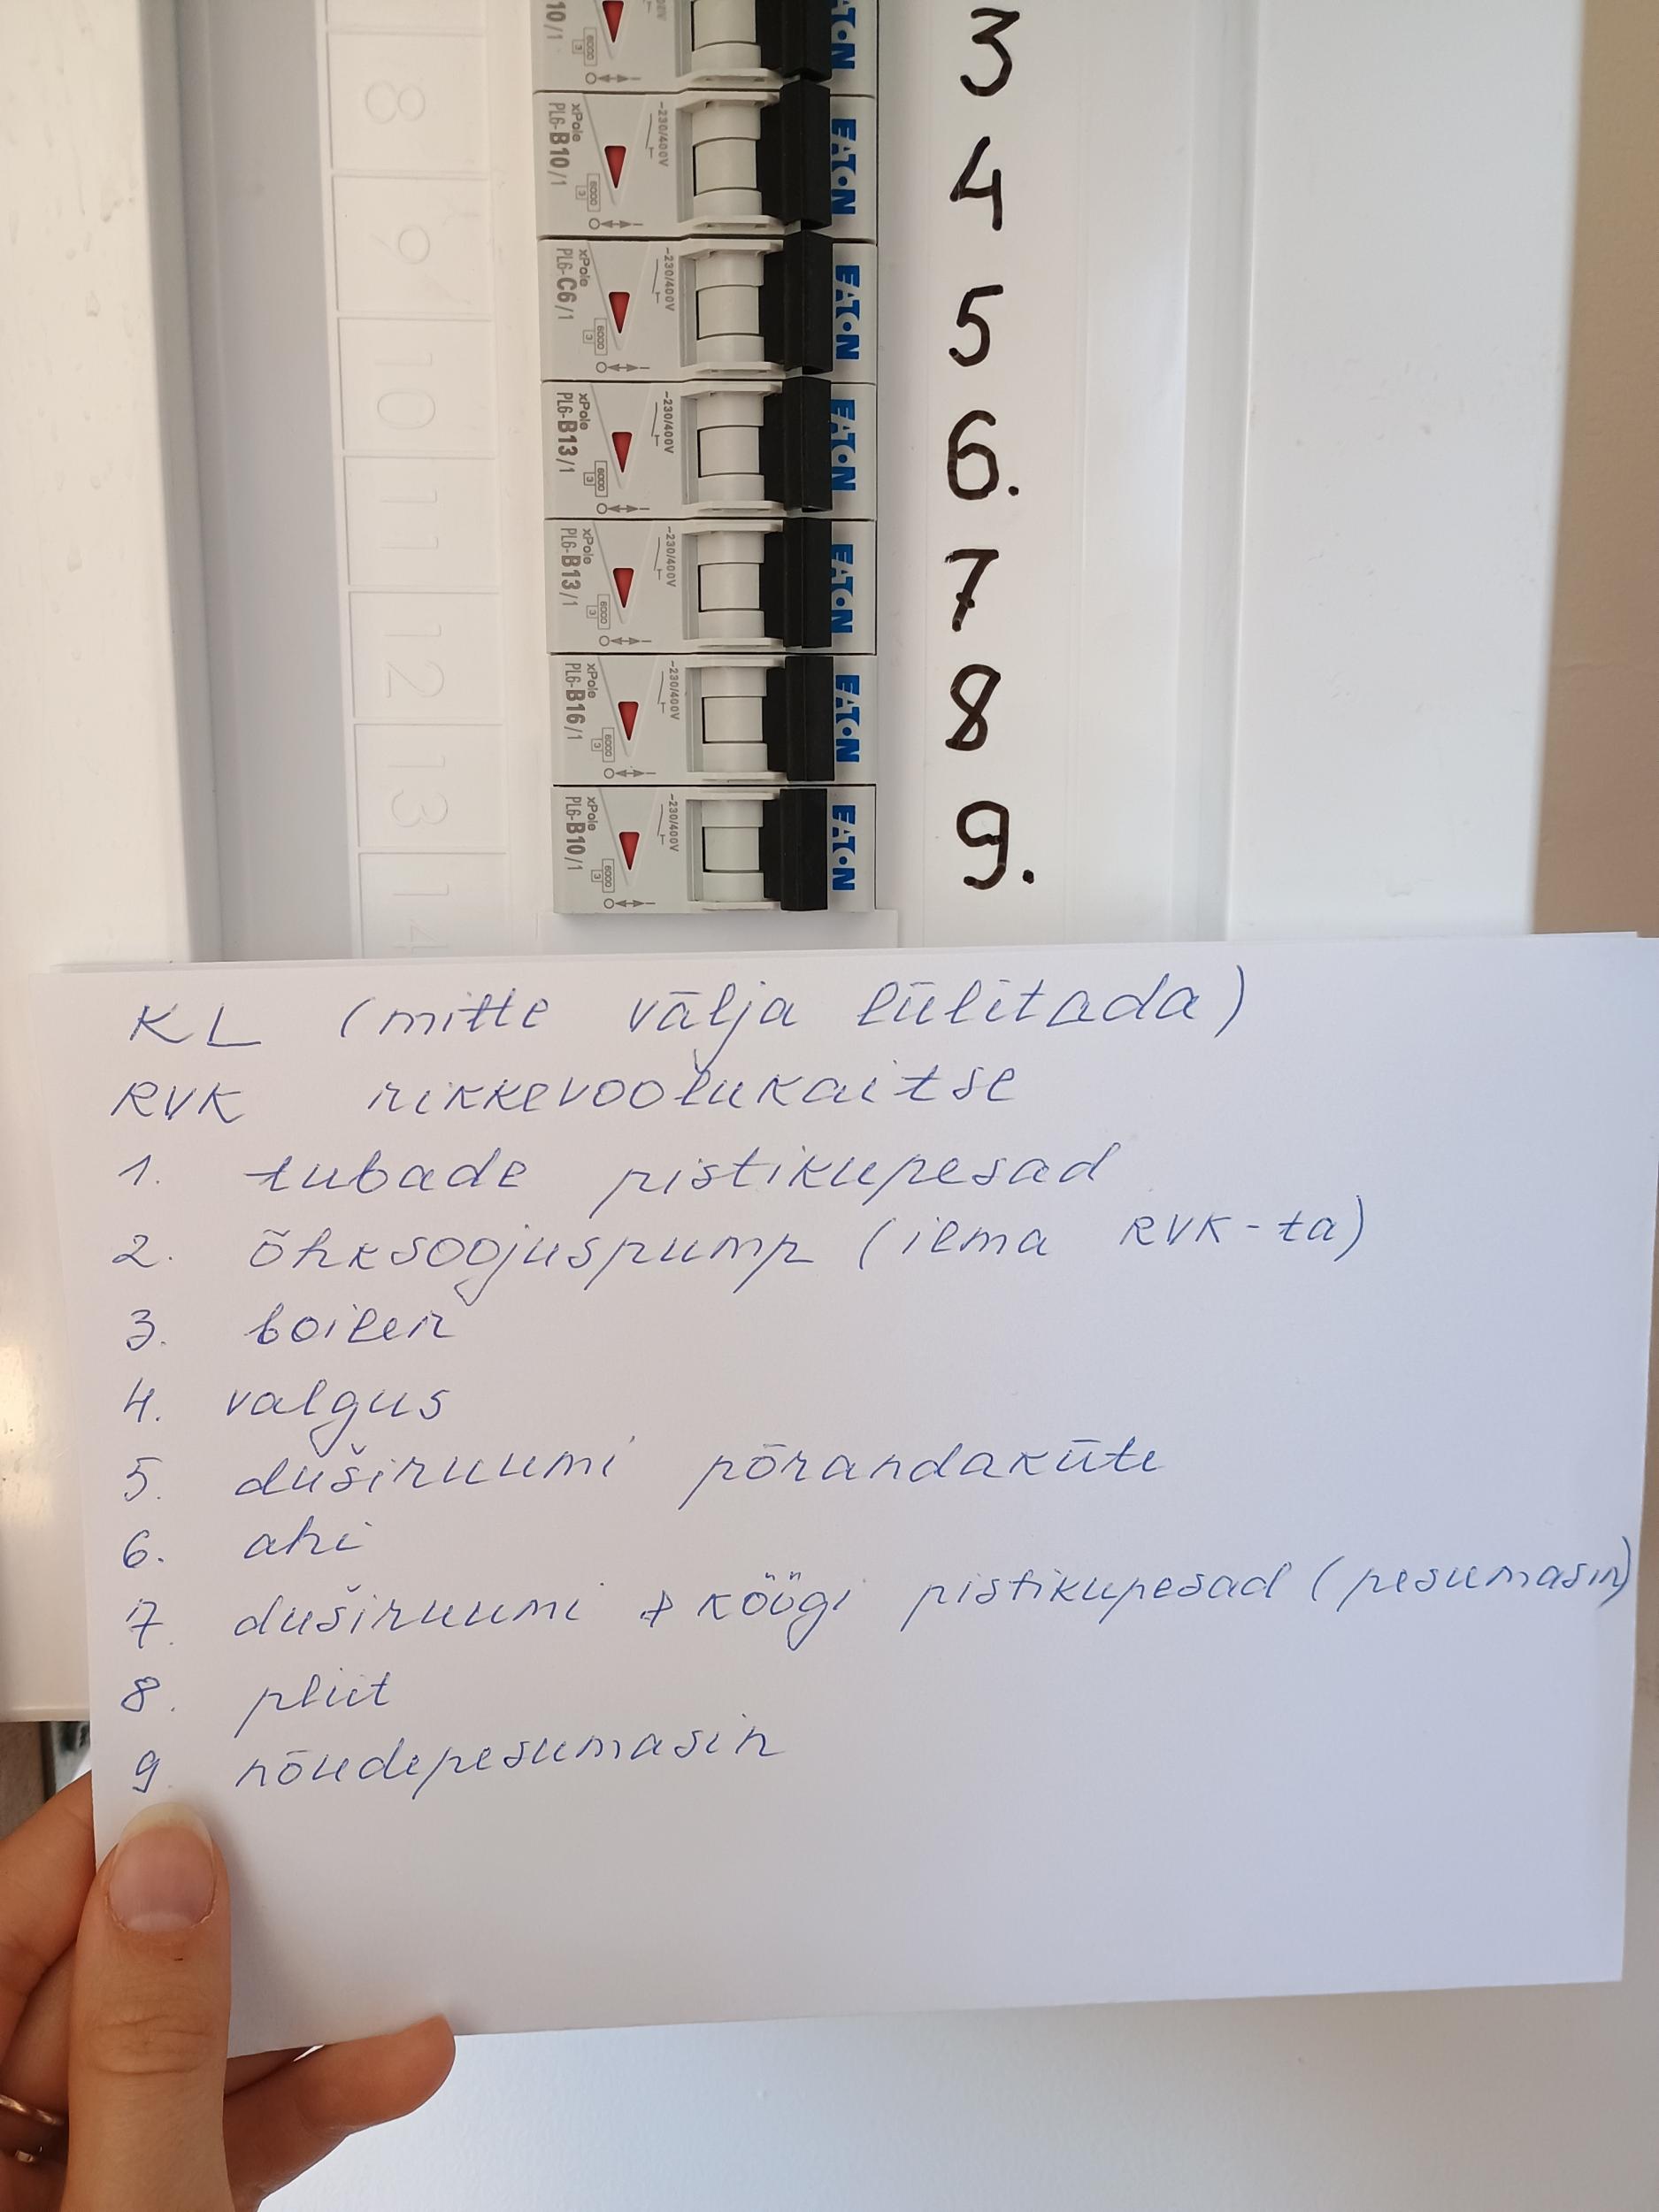 10/1
6000
3
EATON
3
xPole
PL6-B10/1
6000
3
~230/400V
EATON
4
xPole
PL6-C6/1
6000
3
~230/400V
EATON
5
xPole
PL6-B13/1
6000
3
~230/400V
EATON
6.
xPole
PL6-B13/1
6000
3
~230/400V
EATON
7
xPole
PL6-B16/1
6000
3
~230/400V
EATON
8
xPole
PL6-B10/1
6000
3
~230/400V
EATON
9.
8
9
10
11
12
13
14
KL (mitte välja lülitada)
RVK rikkevoolukaitse
1. tubade pistikupesad
2. õhksoojuspump (ilma RVK-ta)
3. boiler
4. valgus
5. duširuumi põrandaküte
6. ahi
7. duširuumi + köögi pistikupesad (pesumasin)
8. pliit
9. nõudepesumasin